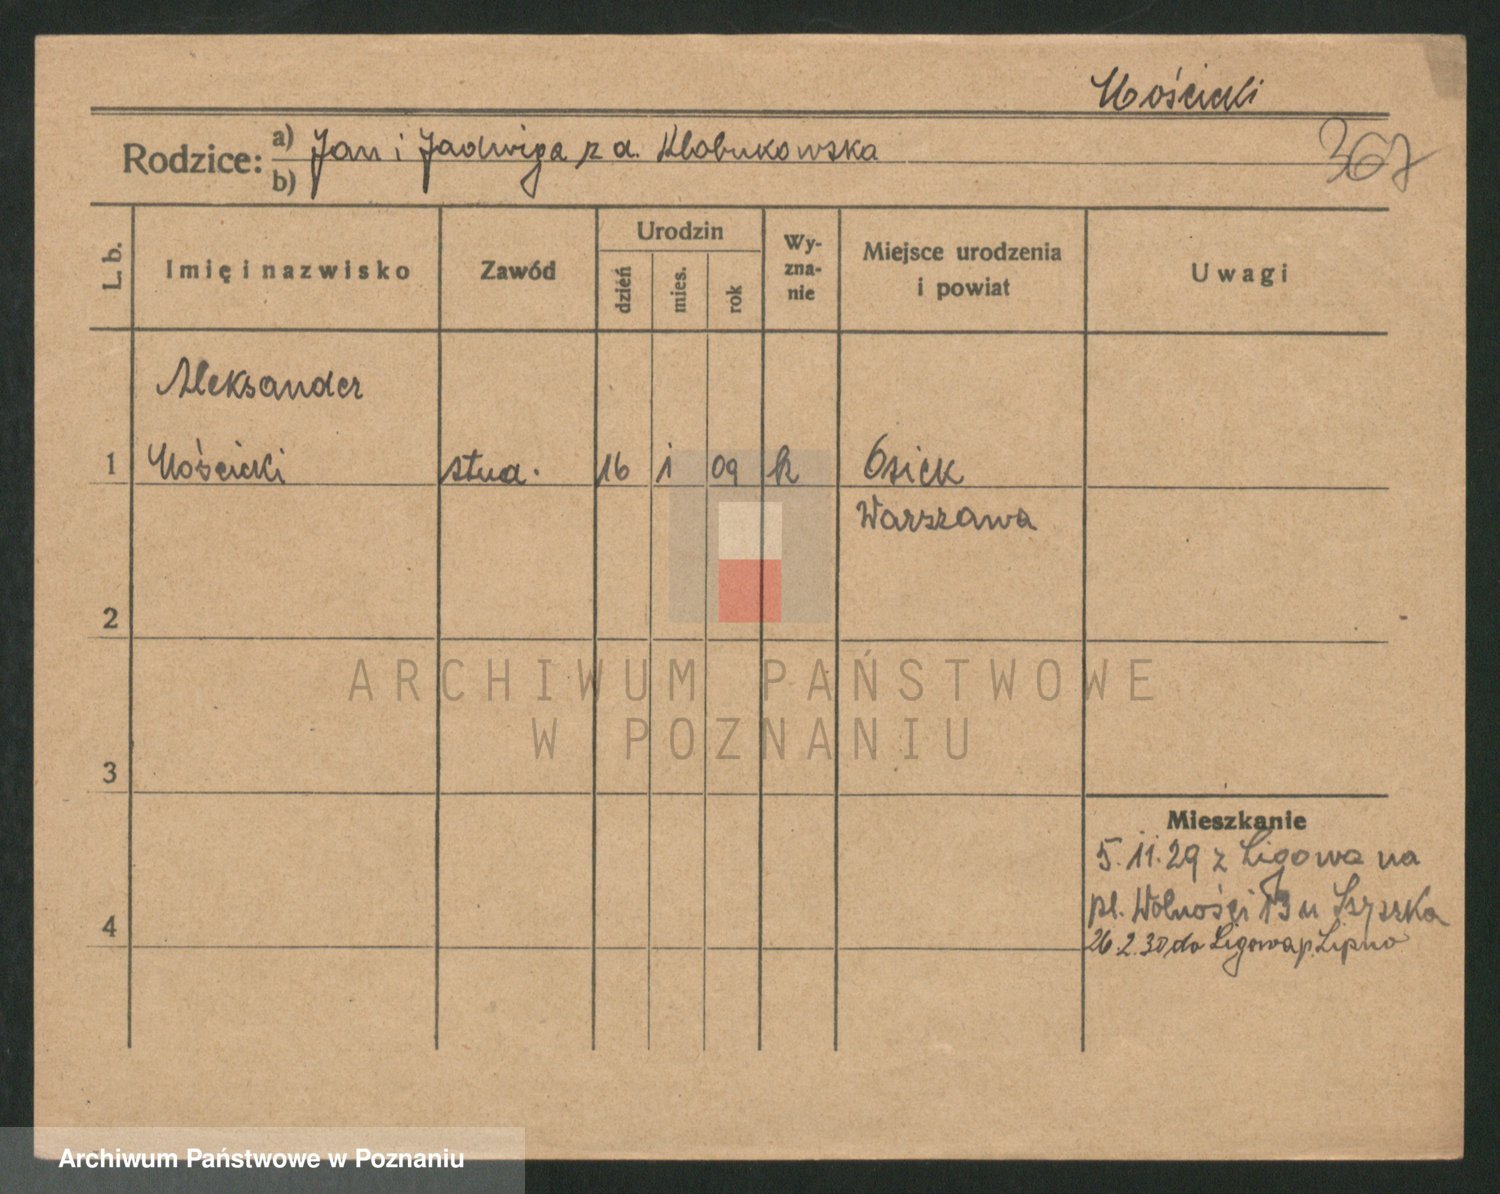 Mościcki
367
Rodzice: a) Jan i Jadwiga z d. Kłobukowska
b)
L. b.
Imię i nazwisko
Zawód
Urodzin
dzień
mies.
rok
Wy-
zna-
nie
Miejsce urodzenia
i powiat
Uwagi
Aleksander
1 Mościcki stud. 16 1 09 k Osiek
Warszawa
2
ARCHIWUM PAŃSTWOWE
W POZNANIU
3
Mieszkanie
5.11.29 z Ligowa na
pl. Wolności 13 u Szyszka
4
26.2.30 do Ligowa p. Lipno
Archiwum Państwowe w Poznaniu